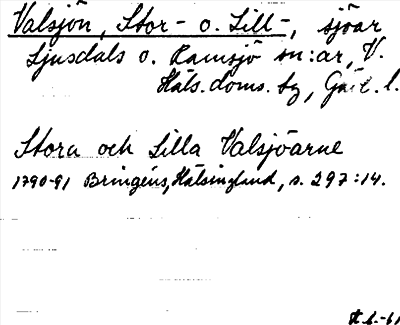 Valsjön, Stor- o. Lill-, sjöar
Ljusdals o. Ramsjö sn:ar, V.
Häls. doms. tg, Gävl. l.
Stora och Lilla Valsjöarne
1790-91 Bringéus, Hälsingland, s. 297:14.